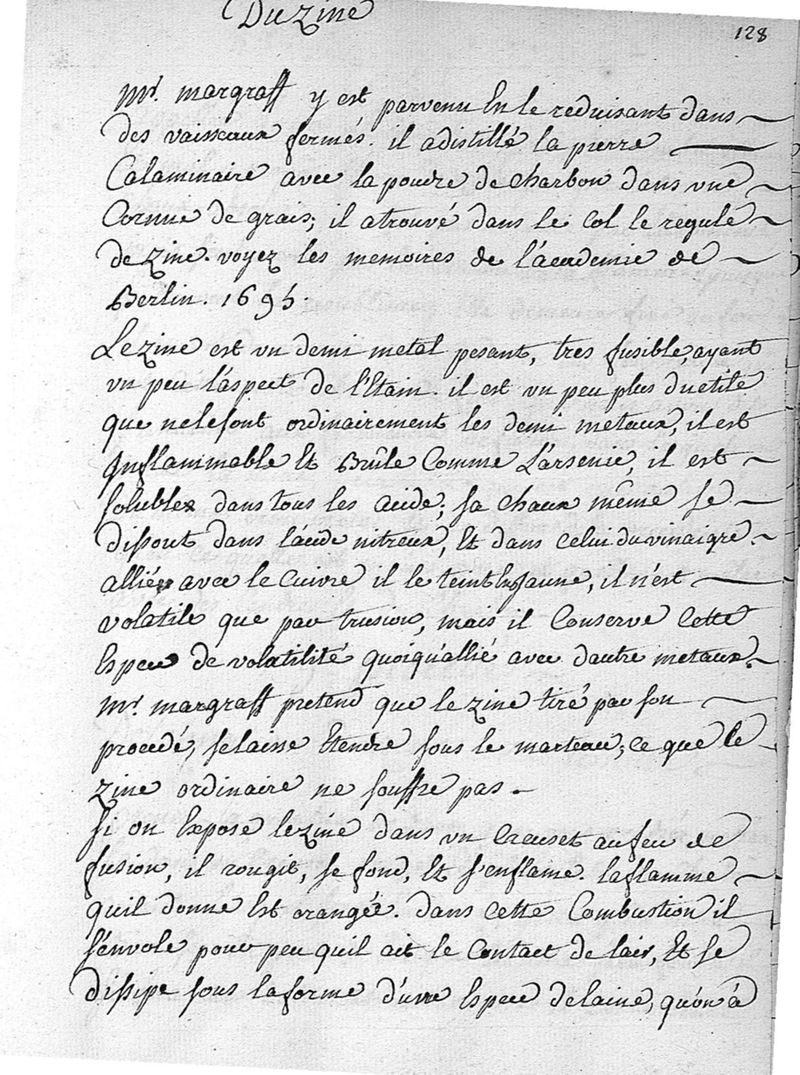 Du Zinc
128
Mr. margraff y est parvenu En le reduisant dans
des vaisseaux fermés. il a distillé la pierre
Calaminaire avec la poudre de Charbon dans une
Cornue de grais; il a trouvé dans le Col le regule
de Zinc. voyez les memoires de l'academie de
Berlin. 1695.
Le zinc est un demi metal pesant, tres fusible, ayant
un peu l'aspect de l'Etain. il est un peu plus ductile
que ne le sont ordinairement les demi metaux, il est
Inflammable Et Brûle Comme L'arsenic, il est
soluble dans tous les acide; sa chaux même se
dissout dans l'acide nitreux, Et dans celui du vinaigre.
allié avec le Cuivre il le teint En Jaune, il n'est
volatile que par trusion, mais il Conserve Cette
Espece de volatilité quoiqu'allié avec dautre metaux.
Mr. margraff pretend que le zinc tiré par son
procedé, se laisse Etendre sous le marteau; ce que le
zinc ordinaire ne souffre pas.
si on Expose le zinc dans un Creuset au feu de
fusion, il rougit, se fond, Et s'enflame. la flamme
quil donne Est orangée. dans cette Combustion il
s'envole pour peu quil ait le Contact de lair, Et se
dissipe sous la forme d'une Espece de laine, qu'on a